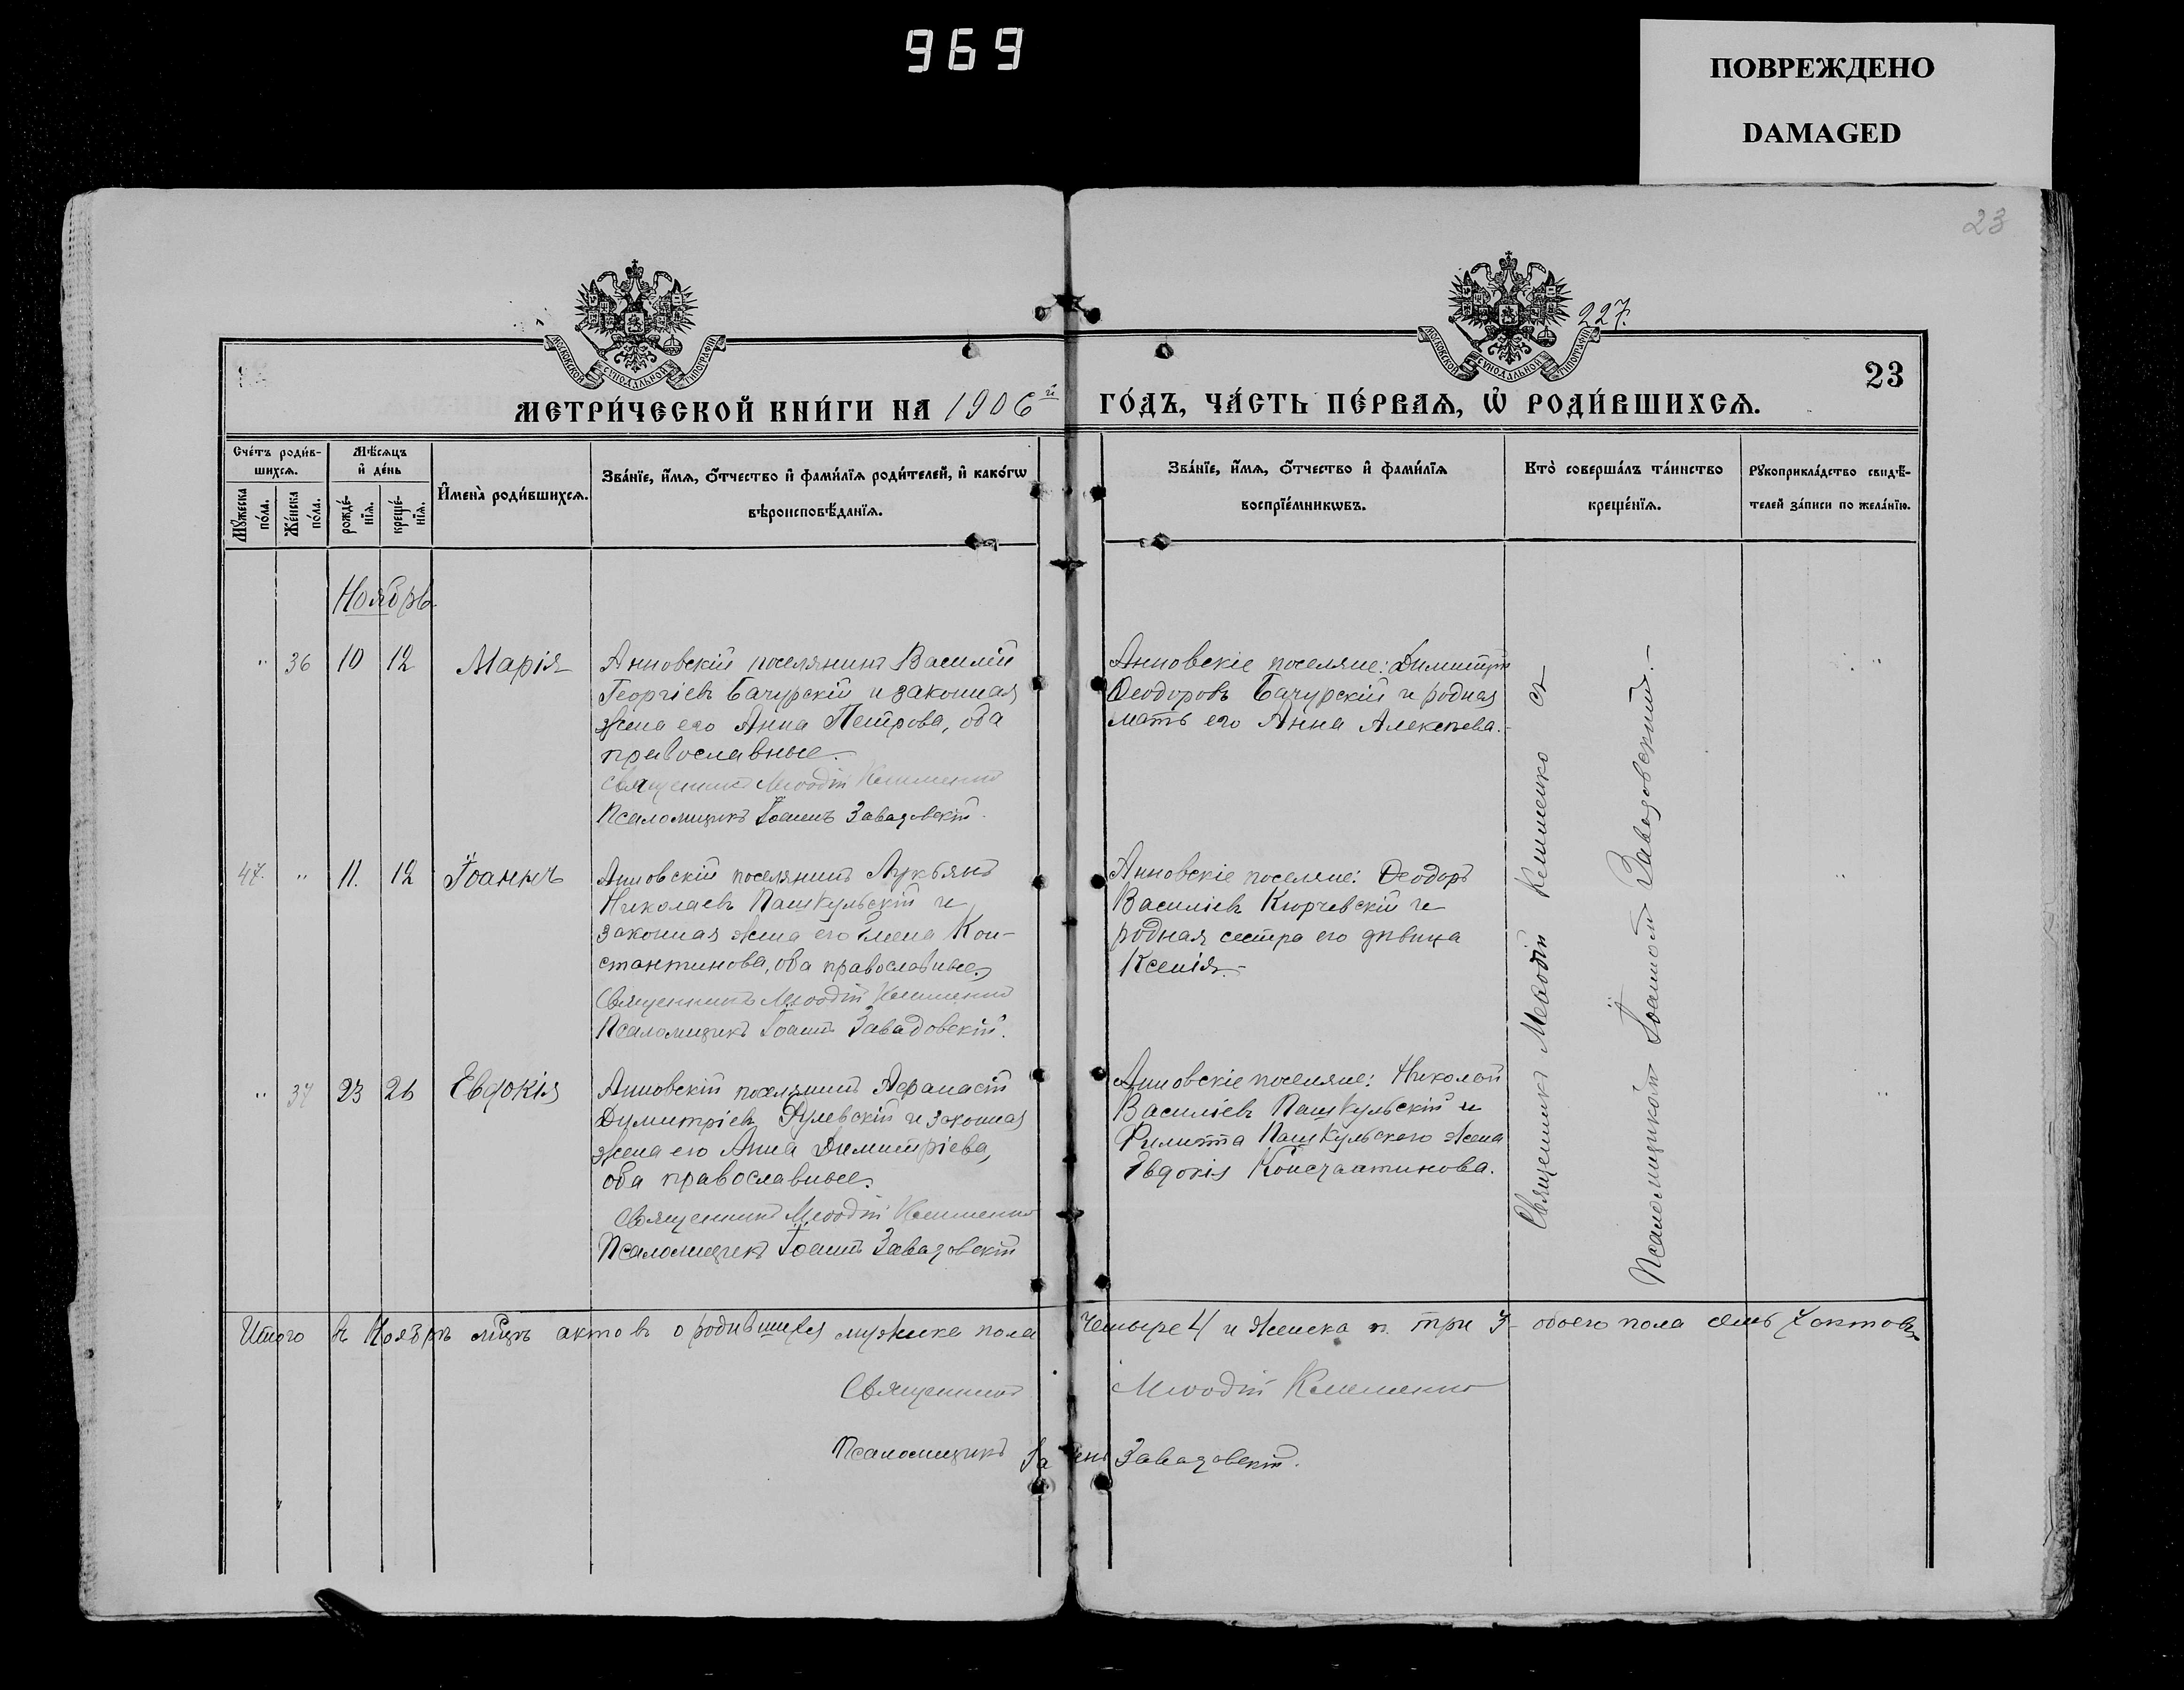 969
ПОВРЕЖДЕНО
DAMAGED
23
227.
МОСКОВСКОЙ СУНОДАЛЬНОЙ ТИПОГРАФІИ
МОСКОВСКОЙ СУНОДАЛЬНОЙ ТИПОГРАФІИ
23
МЕТРИ́ЧЕСКОЙ КНИ́ГИ НА 1906й ГО́ДЪ, ЧА́СТЬ ПЕ́РВАѦ, Ѡ҆ РОДИ́ВШИХСѦ.
Сче́тъ роди́в-
шихсѧ.
Мѣ́сѧцъ
и҆ де́нь
Мꙋ́жеска
по́ла.
Же́нска
по́ла.
рожде́-
нїѧ.
креще́-
нїѧ.
И҆мена̀ роди́вшихсѧ.
Зва́нїе, и҆́мѧ, ѻ҆́тчество и҆ фами́лїѧ роди́телей, и҆ како́гѡ
вѣроисповѣ́данїѧ.
Зва́нїе, и҆́мѧ, ѻ҆́тчество и҆ фами́лїѧ
воспрїе́мникѡвъ.
Кто̀ соверша́лъ та́инство
креще́нїѧ.
Рꙋкоприкла́дство свидѣ́-
телей за́писи по жела́нїю.
Ноябрь
" 36 10 12 Марія
Анновскій поселянинъ Василій
Георгіевъ Бачурскій и законная
жена его Анна Петрова, оба
православные.
Священникъ Меѳодій Клименко
Псаломщикъ Іоаннъ Завадовскій.
Анновскіе поселяне: Димитрій
Ѳеодоровъ Бачурскій и родная
мать его Анна Алексѣева.
47. " 11. 12 Іоаннъ
Анновскій поселянинъ Лукьянъ
Николаевъ Пашкульскій и
законная жена его Елена Кон-
стантинова, оба православные.
Священникъ Меѳодій Клименко
Псаломщикъ Іоаннъ Завадовскій.
Анновскіе поселяне: Ѳеодоръ
Василіевъ Кюрчевскій и
родная сестра его дѣвица
Ксенія.
" 37 23 26 Евдокія
Анновскій поселянинъ Афанасій
Думитріевъ Фулевскій и законная
жена его Анна Димитріева,
оба православные.
Священникъ Меѳодій Клименко
Псаломщикъ Іоаннъ Завадовскій
Анновскіе поселяне: Николай
Василіевъ Пашкульскій и
Филиппа Пашкульского жена
Евдокія Константинова.
Священникъ Меѳодій Клименко съ
Псаломщикомъ Іоанномъ Завадовскимъ.
Итого въ Ноябрѣ мѣсцѣ актовъ о родившихся мужска пола четыре 4 и женска п. три 3 обоего пола семь 7 актовъ
Священникъ Меѳодій Клименко
Псаломщикъ Іоаннъ Завадовскій.